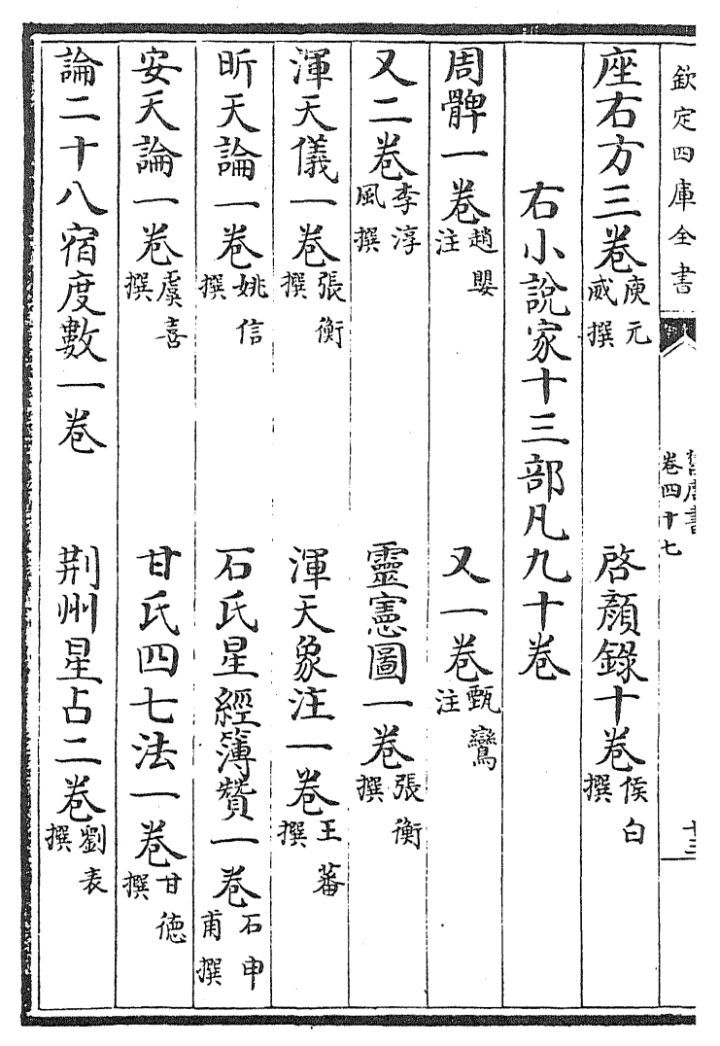 欽定四庫全書
舊唐書
卷四十七
十三
座右方三卷庾元威撰 啓顏錄十卷侯白撰
右小說家十三部凡九十卷
周髀一卷趙嬰注 又一卷甄鸞注
又二卷李淳風撰 靈憲圖一卷張衡撰
渾天儀一卷張衡撰 渾天象注一卷王蕃撰
昕天論一卷姚信撰 石氏星經簿贊一卷石申甫撰
安天論一卷虞喜撰 甘氏四七法一卷甘德撰
論二十八宿度數一卷 荆州星占二卷劉表撰